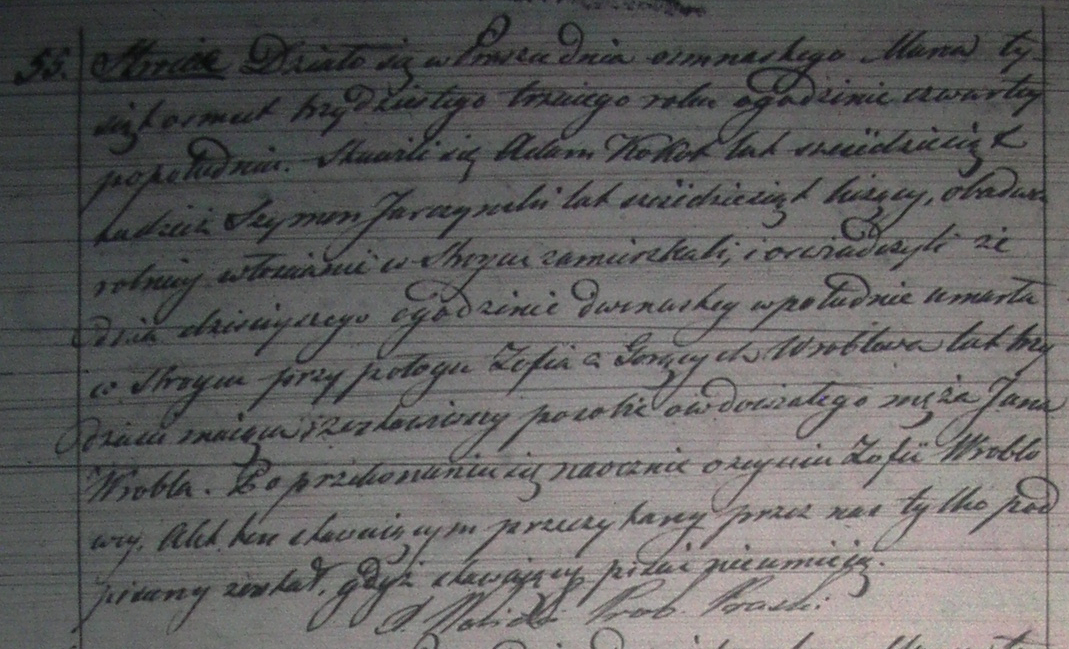 55. Stroże Działo się w Proszu dnia osmnastego Marca ty-
siąc osmset trzydziestego trzeciego roku ogodzinie czwartey
popołudniu. Stawili się Adam Kokot lat sześćdziesiąt
tudzież Szymon Jarczynski lat sześćdziesiąt liczący, obadwa
rolnicy włoscianie w zamieszkali, i oswiadczyli że
dnia dzisieyszego ogodzinie dwunastey wpołudnie umarła
w przy połogu Zofia z Gorących Wroblowa lat trzy
dzieści maiąca zostawiwszy posobie owdowiałego męża Jana
Wrobla. Po przekonaniu się naocznie o zeyściu Zofii Wroblo
wey, Akt ten stawaiącym przeczytany przez nas tylko pod
pisany został, gdyż stawaiący pisać nieumieią.
Prob.